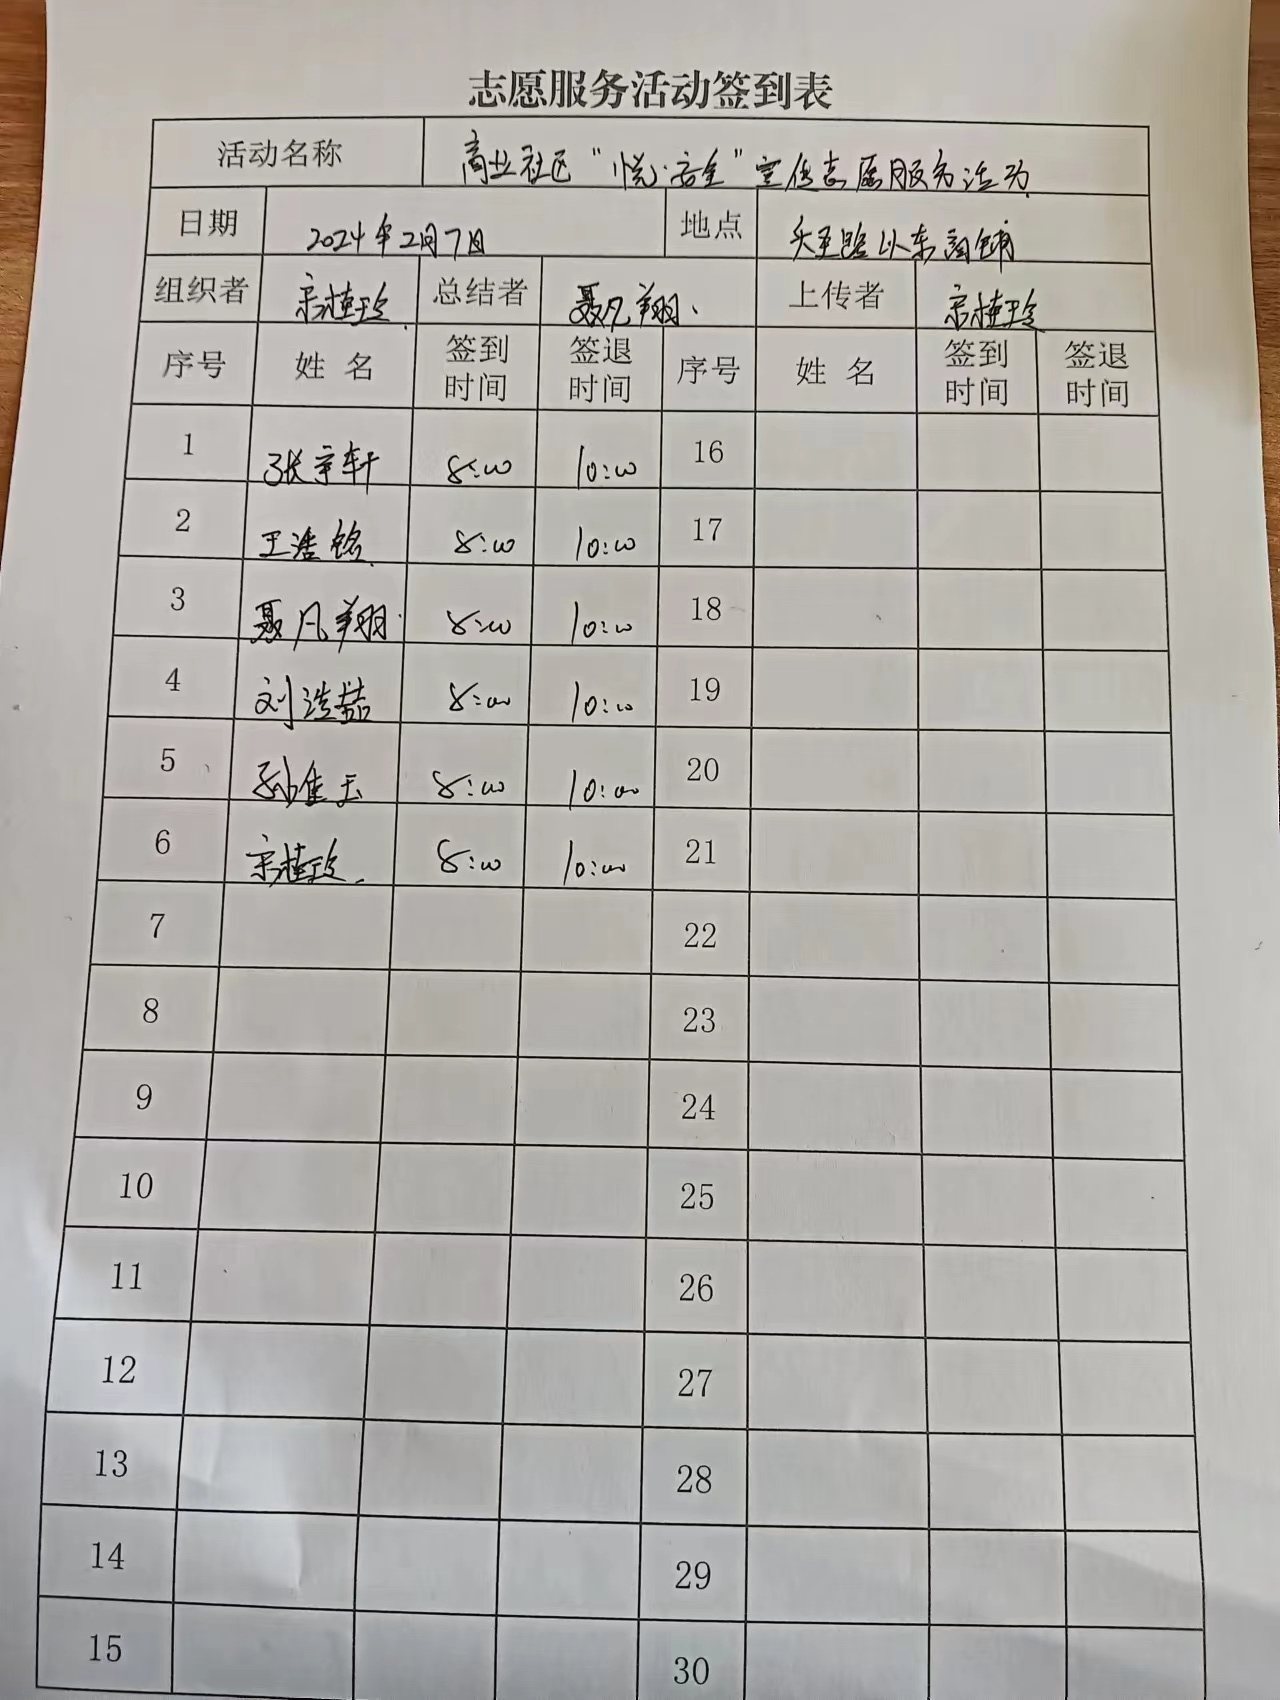 志愿服务活动签到表
活动名称 商业社区“悦·安全”宣传志愿服务活动
日期 2024年2月7日 地点 以东商铺
组织者 宗桂玲 总结者 聂凡翔 上传者 宗桂玲
序号 姓名 签到时间 签退时间 序号 姓名 签到时间 签退时间
1 张宇轩 8:00 10:00 16
2 王浩铭 8:00 10:00 17
3 聂凡翔 8:00 10:00 18
4 刘浩喆 8:00 10:00 19
5 孙佳玉 8:00 10:00 20
6 宗桂玲 8:00 10:00 21
7 22
8 23
9 24
10 25
11 26
12 27
13 28
14 29
15 30